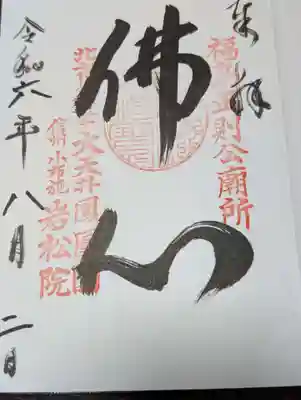 奉拝
福島正則公廟所
佛心
大天井鳳凰図
信州小布施 岩松院
令和六年八月二日